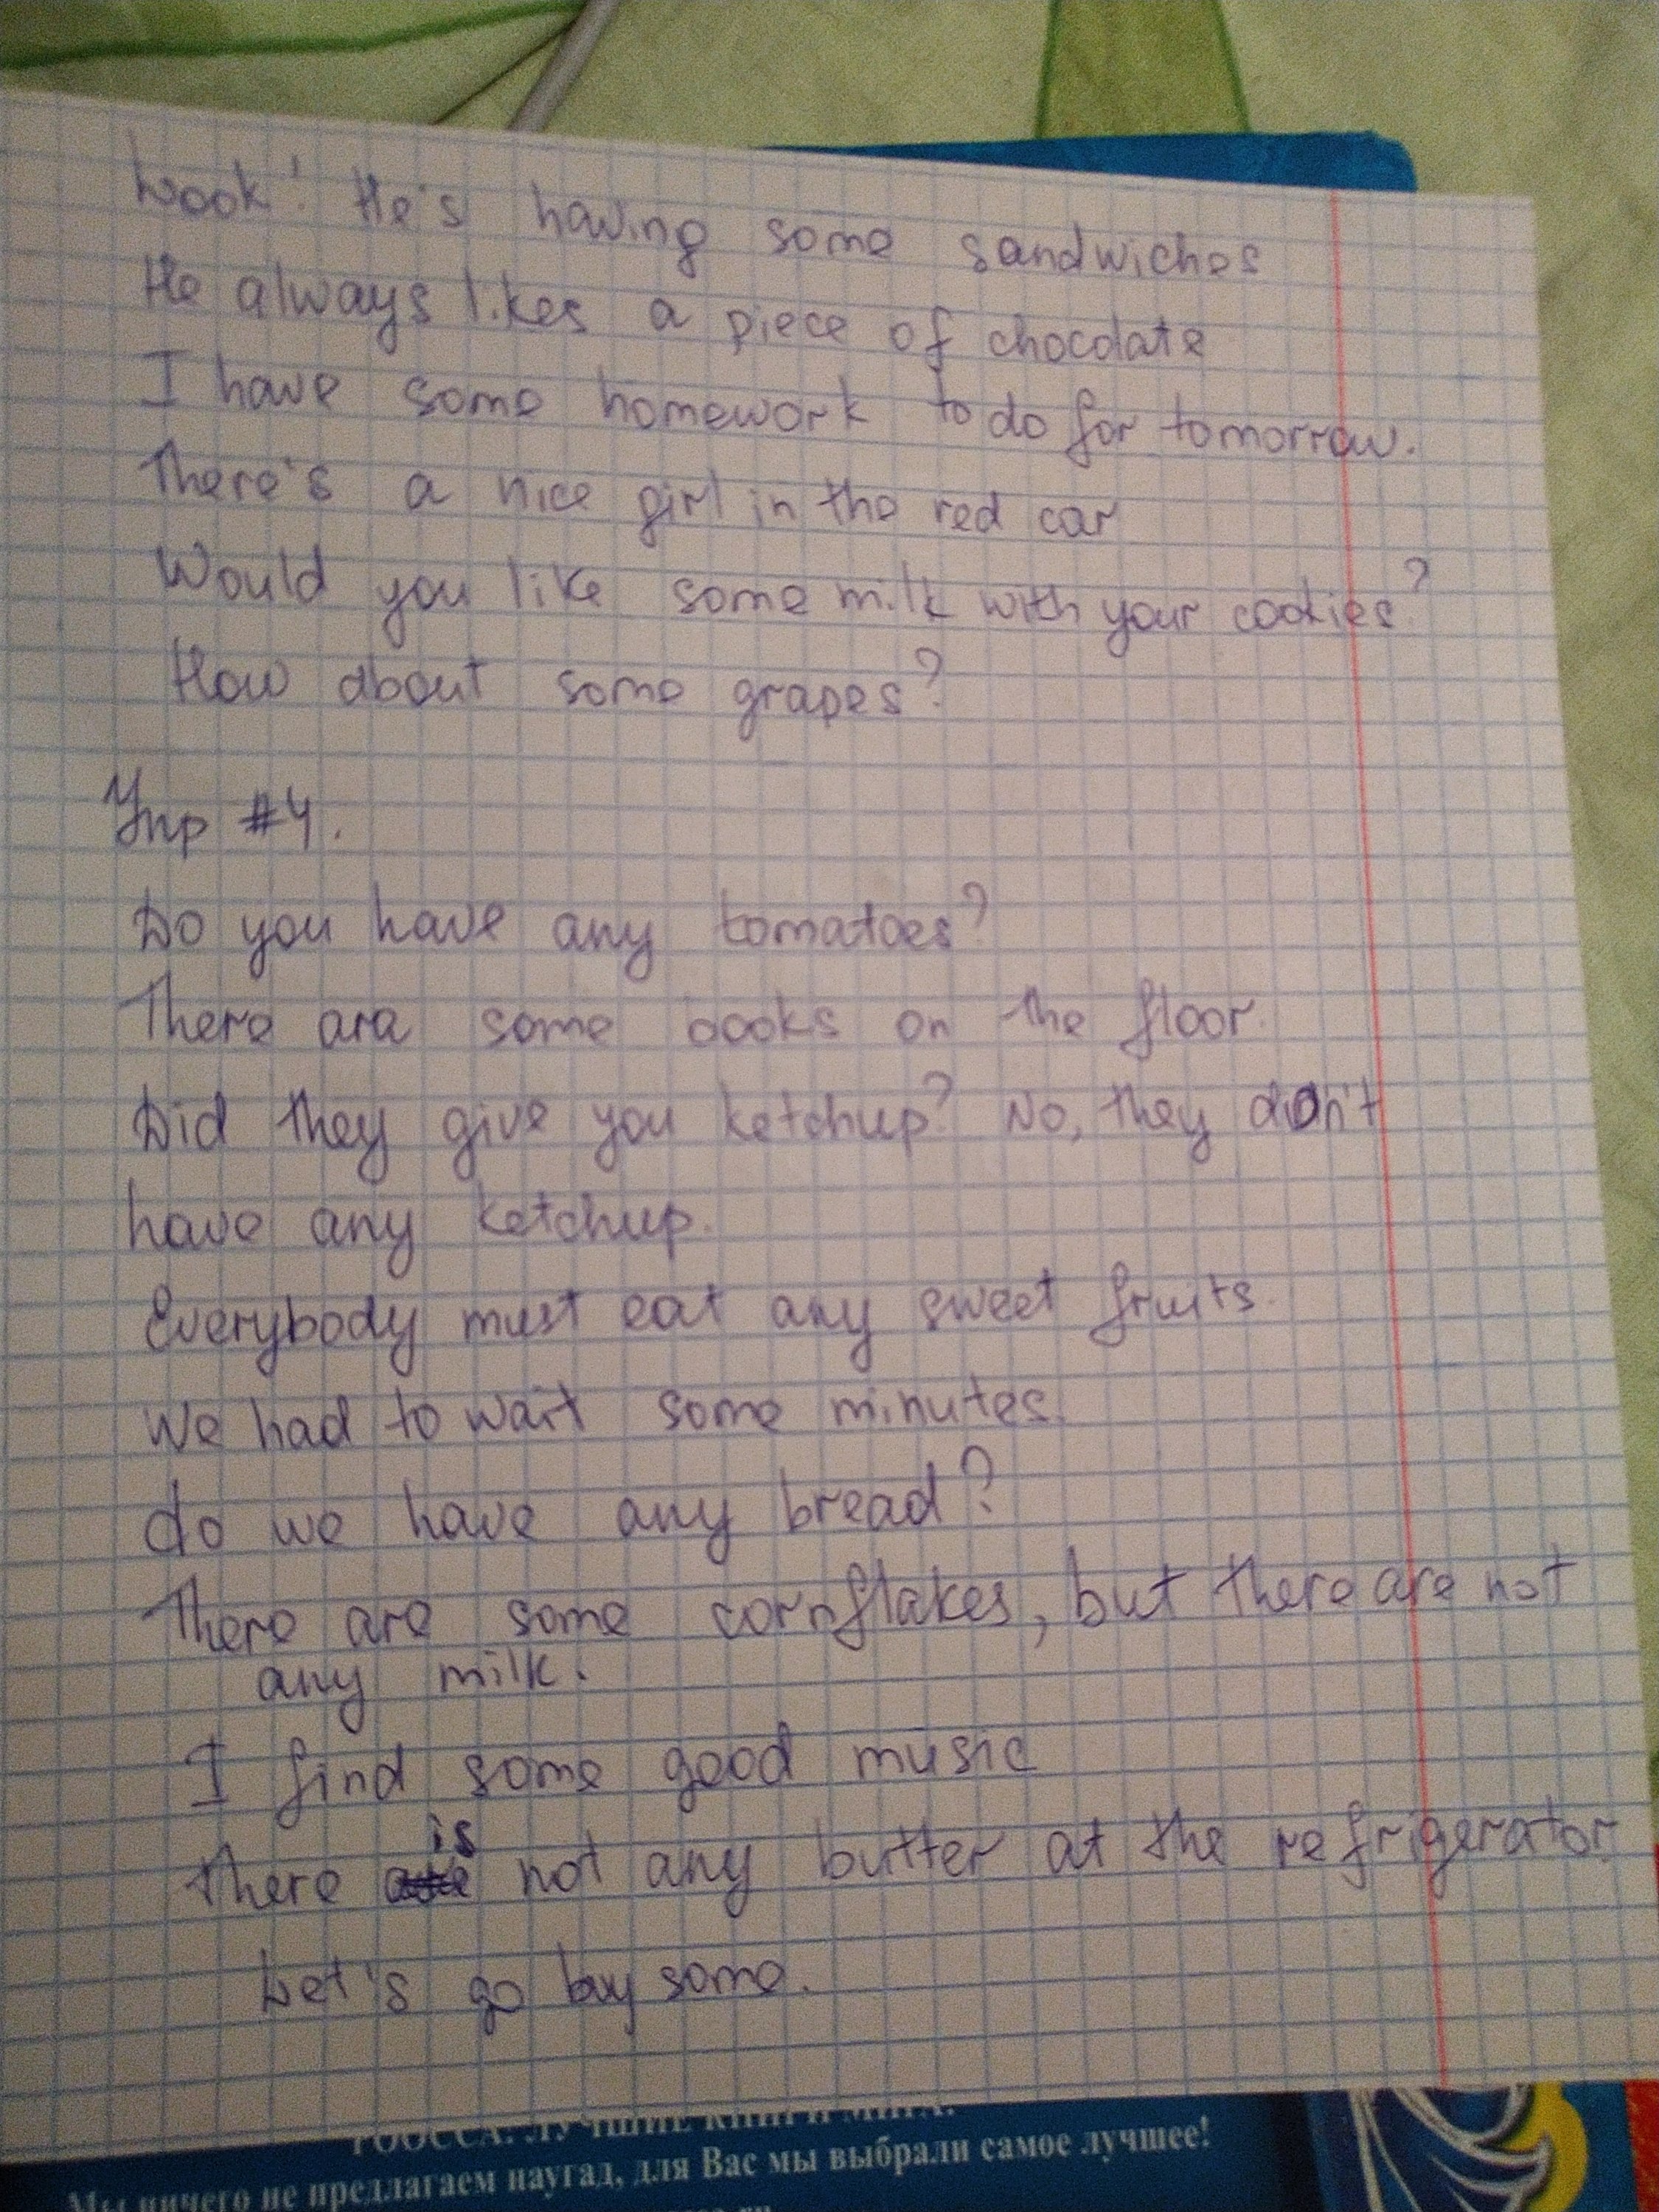 Look! He's having some sandwiches
He always likes a piece of chocolate
I have some homework to do for tomorrow.
There's a nice girl in the red car
Would you like some milk with your cookies?
How about some grapes?
Упр #4.
Do you have any tomatoes?
There are some books on the floor.
Did they give you ketchup? No, they don't
have any ketchup.
Everybody must eat any sweet fruits.
We had to wait some minutes.
do we have any bread?
There are some cornflakes, but there are not
any milk.
I find some good music
There is not any butter at the refrigerator.
Let's go buy some.
РООССА: ЛУЧШИЕ КНИГИ МИРА.
Мы ничего не предлагаем наугад, для Вас мы выбрали самое лучшее!